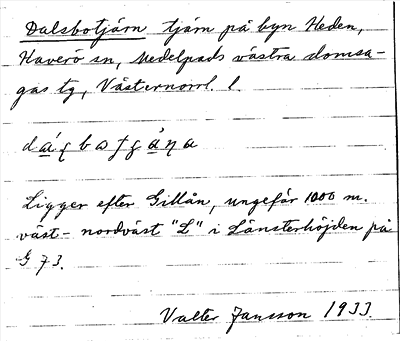 Dalsbotjärn tjärn på byn Heden,
Haverö sn, Medelpads västra domsa-
gas tg, Västernorrl. l.
Ligger efter Gillån, ungefär 1000 m.
väst-nordväst "L" i Länsterhöjden på
G 73.
Valter Jansson 1933.